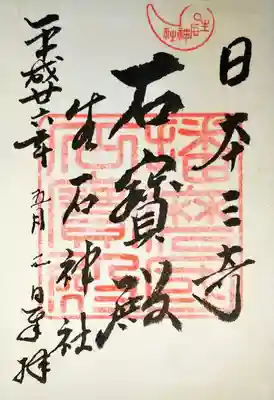 日本三奇
石寳殿
生石神社
平成廿六年五月二日拝
生石神社